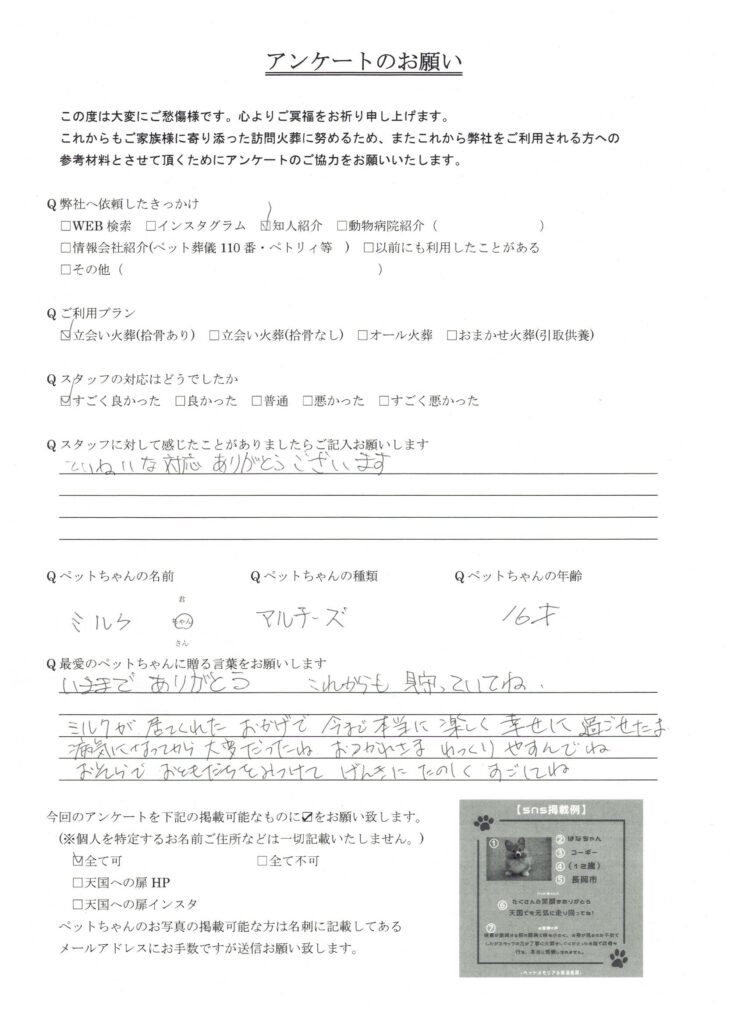 アンケートのお願い
この度は大変にご愁傷様です。心よりご冥福をお祈り申し上げます。
これからもご家族様に寄り添った訪問火葬に努めるため、またこれから弊社をご利用される方への
参考材料とさせて頂くためにアンケートのご協力をお願いいたします。
Q 弊社へ依頼したきっかけ
□WEB 検索 □インスタグラム ☑知人紹介 □動物病院紹介（ ）
□情報会社紹介(ペット葬儀 110 番・ペトリィ等 ) □以前にも利用したことがある
□その他（ ）
Q ご利用プラン
☑立会い火葬(拾骨あり) □立会い火葬(拾骨なし) □オール火葬 □おまかせ火葬(引取供養)
Q スタッフの対応はどうでしたか
☑すごく良かった □良かった □普通 □悪かった □すごく悪かった
Q スタッフに対して感じたことがありましたらご記入お願いします
ていねいな対応 ありがとうございます
Q ペットちゃんの名前 Q ペットちゃんの種類 Q ペットちゃんの年齢
君
ミルク ちゃん マルチーズ 16才
さん
Q 最愛のペットちゃんに贈る言葉をお願いします
いままで ありがとう これからも 見守っていてね.
ミルクが 居てくれた おかげで 今まで 本当に 楽しく 幸せに 過ごせたよ
病気になってから 大変だったね おつかれさま ゆっくり やすんでね
おそらで おともだちをみつけて げんきに たのしく すごしてね
今回のアンケートを下記の掲載可能なものに☑をお願い致します。
(※個人を特定するお名前ご住所などは一切記載いたしません。)
☑全て可 □全て不可
□天国への扉 HP
□天国への扉インスタ
ペットちゃんのお写真の掲載可能な方は名刺に記載してある
メールアドレスにお手数ですが送信お願い致します。
【sns掲載例】
① ② はなちゃん
③ コーギー
④ （12歳）
⑤ 長岡市
⑥ たくさんの笑顔をありがとう
天国でも元気に走り回ってね！
⑦